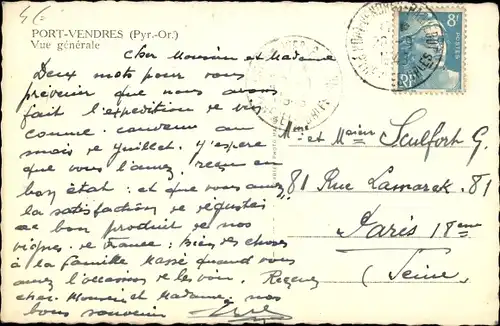 PORT-VENDRES (Pyr.-Or.)
Vue générale
Cher Monsieur et Madame
Deux mots pour vous
prévenir que nous avons
fait l'expedition de vin
comme convenu au
mois de juillet. J'espere
que vous l'aurez reçu en
bon état : et que vous aurez
la satisfaction de deguster
ce bon produit de nos
vignes de France : Bien des choses
à la famille Massé quand vous
aurez l'occasion de les voir. Recevez
cher Monsieur et Madame, nos
bons souvenirs
8F
POSTES
Mme et Mr Sculfort G.
81 Rue Lamarck. 81
Paris 18eme
(Seine)